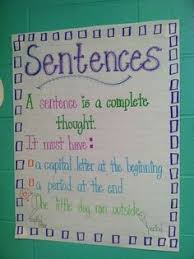 Sentences
A sentence is a complete
thought.
It must have:
a capital letter at the beginning
a period at the end
The little dog ran outside.